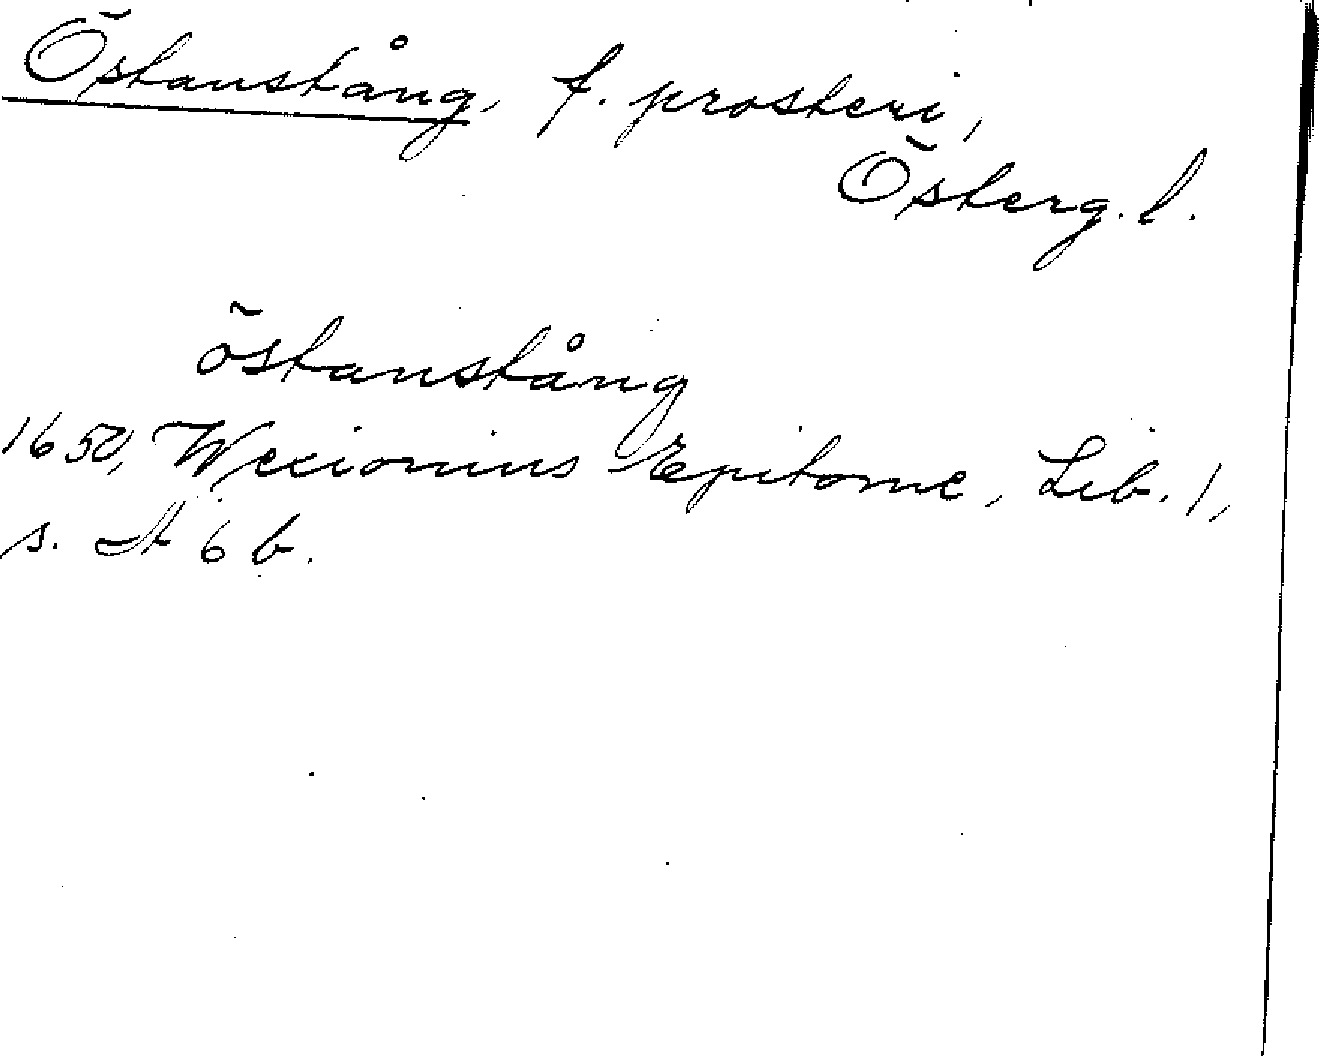 Östanstång, f. prosteri,
Österg.l.
östanstång
1650, Wexionius Epitome, Lib. 1,
s. 6 b.